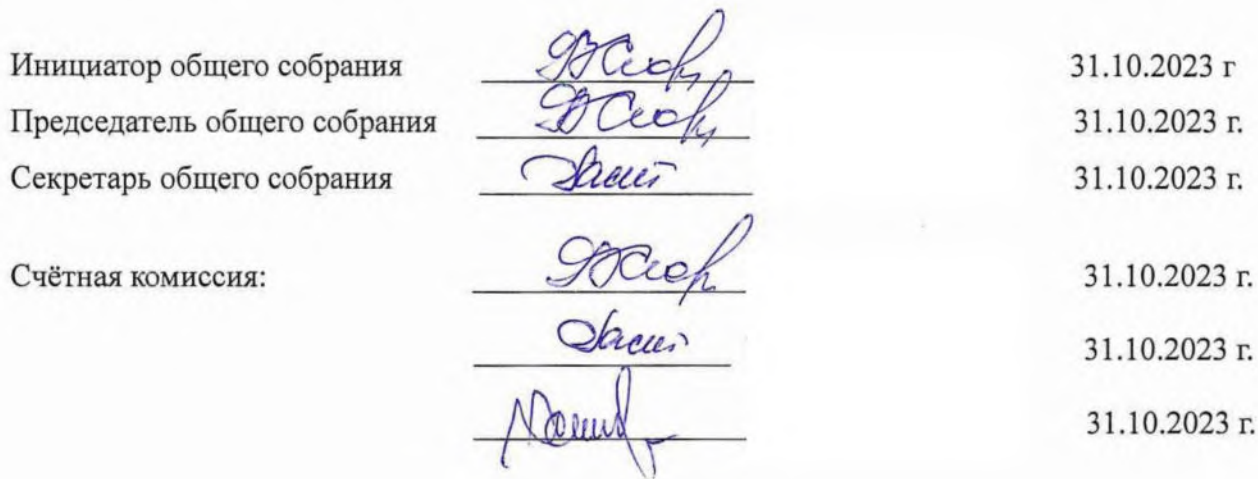 Инициатор общего собрания 31.10.2023 г
Председатель общего собрания 31.10.2023 г.
Секретарь общего собрания 31.10.2023 г.
Счётная комиссия: 31.10.2023 г.
31.10.2023 г.
31.10.2023 г.